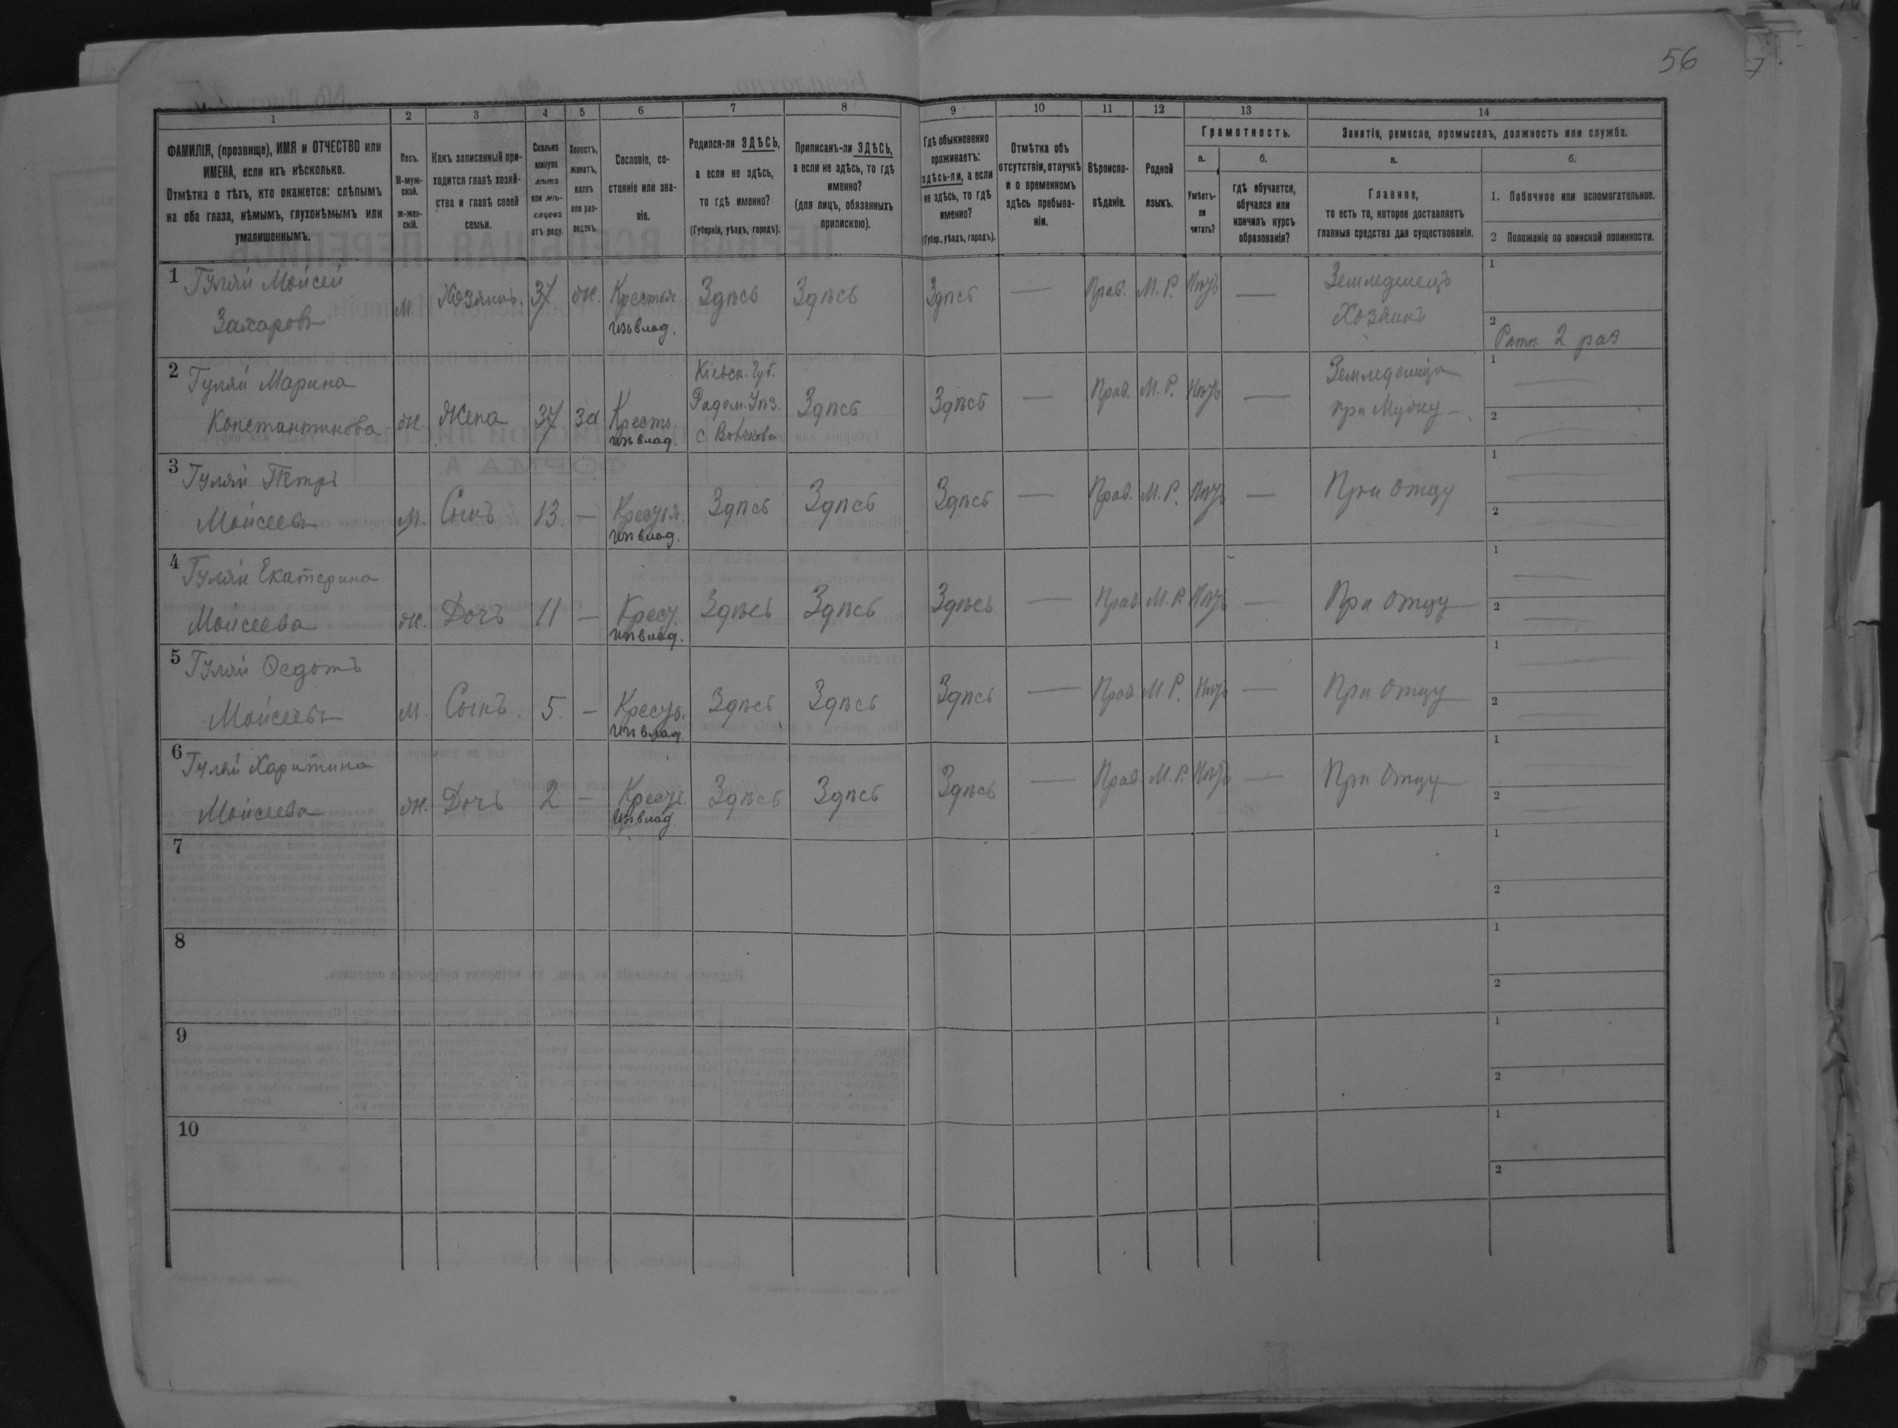 56
7
1 2 3 4 5 6 7 8 9 10 11 12 13 14
ФАМИЛІЯ, (прозвище), ИМЯ и ОТЧЕСТВО или
ИМЕНА, если ихъ нѣсколько.
Отмѣтка о тѣхъ, кто окажется: слѣпымъ
на оба глаза, нѣмымъ, глухонѣмымъ или
умалишеннымъ.
Полъ.
М-муж-
ской.
ж-жен-
скій.
Какъ записанный при-
ходится главѣ хозяй-
ства и главѣ своей
семьи.
Сколько
минуло
лѣтъ
или мѣ-
сяцевъ
отъ роду.
Холостъ,
женатъ,
вдовъ
или раз-
веденъ.
Сословіе, со-
стояніе или зва-
ніе.
Родился-ли ЗДѢСЬ,
а если не здѣсь,
то гдѣ именно?
(Губернія, уѣздъ, городъ).
Приписанъ-ли ЗДѢСЬ,
а если не здѣсь, то гдѣ
именно?
(для лицъ, обязанныхъ
припискою).
Гдѣ обыкновенно
проживаетъ:
здѣсь-ли, а если
не здѣсь, то гдѣ
именно?
(Губер., уѣздъ, городъ).
Отмѣтка объ
отсутствіи, отлучкѣ
и о временномъ
здѣсь пребыва-
ніи.
Вѣроиспо-
вѣданіе.
Родной
языкъ.
Грамотность.
а. б.
Умѣетъ-
ли
читать?
гдѣ обучается,
обучался или
кончилъ курсъ
образованія?
Занятіе, ремесло, промыселъ, должность или служба.
а. б.
Главное,
то есть то, которое доставляетъ
главныя средства для существованія.
1. Побочное или вспомогательное.
2 Положеніе по воинской повинности.
1 Гуляй Мойсей
Захаровъ
м. Хозяинъ. 37 ж. Крестья. Здѣсь Здѣсь Здѣсь — Прав. М. Р. Нѣтъ —
изъ влад.
Земледелецъ
Хозяинъ
1
2
Ратн. 2 раз
2 Гуляй Марина
Константинова
ж Жена 37 за Кресть.
изъ влад.
Кіевск. Губ.
Радом. Уѣз.
с.
Здѣсь Здѣсь — Прав. М. Р. Нѣтъ —
Земледелица
при Мужу —
1 —
2 —
3 Гуляй Петръ
Мойсеевъ
м. Сынъ 13 — Крестья.
изъ влад.
Здѣсь Здѣсь Здѣсь — Прав. М. Р. Нѣтъ — При отцу
1 —
2 —
4 Гуляй Екатерина
Мойсеева
ж. Дочь 11 — Крест.
изъ влад.
Здѣсь Здѣсь Здѣсь — Прав М. Р. Нѣтъ — При отцу
1 —
2 —
5 Гуляй Федотъ
Мойсеевъ
м. Сынъ. 5. — Крестья.
изъ влад.
Здѣсь Здѣсь Здѣсь — Прав М. Р. Нѣтъ — При отцу
1 —
2 —
6 Гуляй Харитина
Мойсеева
ж. Дочь 2 — Крест.
изъ влад
Здѣсь Здѣсь Здѣсь — Прав. М. Р. Нѣтъ — При отцу
1 —
2 —
7
1
2
8
1
2
9
1
2
10
1
2